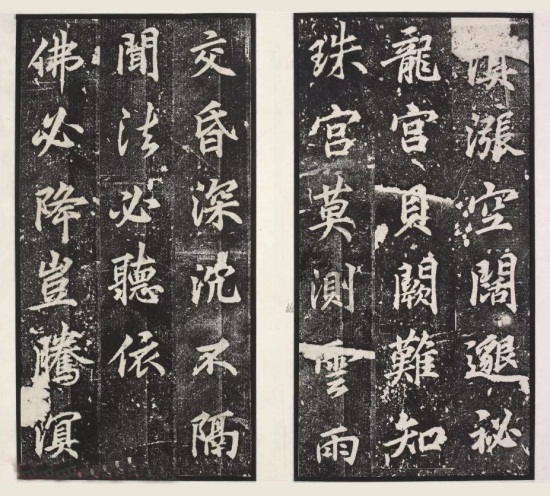 溟漲空闊遐祕
龍宮貝闕難知
珠宮莫測雲雨
交昏深沈不隔
聞法必聽依
佛必降豈騰溟